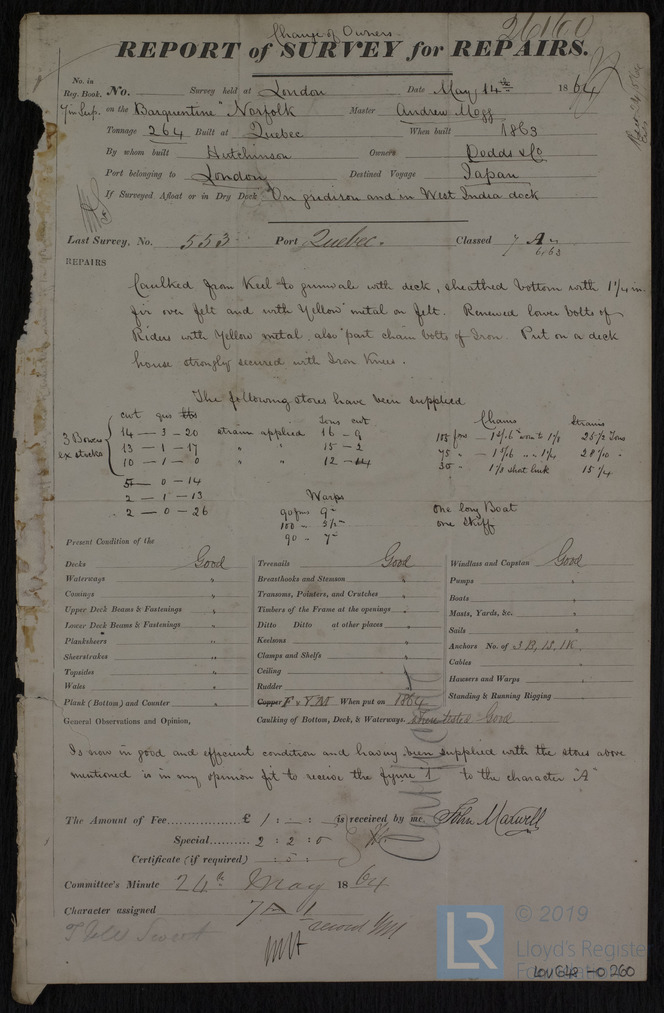 Change of Owners
26160
REPORT of SURVEY for REPAIRS.
No. in Reg. Book. No. Survey held at London Date May 14th 1864
on the Barquentine "Norfolk Master Andrew Mogg
Tonnage 264 Built at Quebec When built 1863
By whom built Hutchinson Owners Dodds & Co
Port belonging to London Destined Voyage Japan
If Surveyed Afloat or in Dry Dock On gridiron and in West India dock
Last Survey, No. 553 Port Quebec. Classed 7 A
6.63
REPAIRS
Caulked from Keel to gunwale with deck, sheathed bottom with 1 1/4 in.
fir over felt and with Yellow metal on felt. Renewed lower bolts of
Riders with Yellow metal also part chain bolts of Iron. Put on a deck
house strongly secured with Iron Knees.
The following stores have been supplied
cwt qrs lbs Tons cwt Chains Strains
3 Bowers ex stocks
14 – 3 – 20 strain applied 16 – 9 25 1/2 Tons
13 – 1 – 17 " " 15 – 2
10 – 1 – 0 " " 12 – 14 1/8 short link 15 1/4
5 – 0 – 14
2 – 1 – 13 Warps
2 – 0 – 26 90 fms 9" one long Boat
100 " 5 1/2" one Skiff
90 " 7"
Present Condition of the
Decks Good Treenails Good Windlass and Capstan Good
Waterways " Breasthooks and Stemson " Pumps "
Comings " Transoms, Pointers, and Crutches " Boats "
Upper Deck Beams & Fastenings " Timbers of the Frame at the openings " Masts, Yards, &c. "
Lower Deck Beams & Fastenings " Ditto Ditto at other places " Sails "
Planksheers " Keelsons " Anchors No. of 3B, 1S, 1K
Sheerstrakes " Clamps and Shelfs " Cables "
Topsides " Ceiling " Hausers and Warps "
Wales " Rudder " Standing & Running Rigging "
Plank (Bottom) and Counter " Copper F & YM When put on 1864
General Observations and Opinion, Caulking of Bottom, Deck, & Waterways. Good
Is now in good and efficient condition and having been supplied with the stores above
mentioned is in my opinion fit to receive the figure 1 to the character "A"
The Amount of Fee £ 1 : – : – is received by me, John Maxwell
Special 2 : 2 : 0
Certificate (if required) – : 5 : –
Committee's Minute 24th May 1864
Character assigned 7 A 1
© 2019
LR
Lloyd's Register
Foundation
LON 646 - 0260